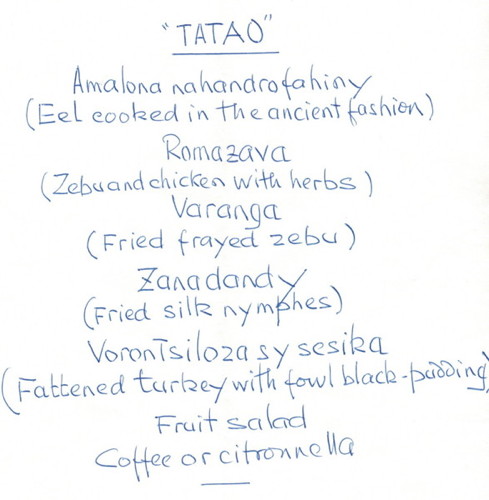 "TATAO"
Amalona nahandrofahiny
(Eel cooked in the ancient fashion)
Romazava
(Zebu and chicken with herbs)
Varanga
(Fried frayed zebu)
Zanadandy
(Fried silk nymphes)
Vorontsiloza sy sesika
(Fattened turkey with fowl black-pudding)
Fruit salad
Coffee or citronnella